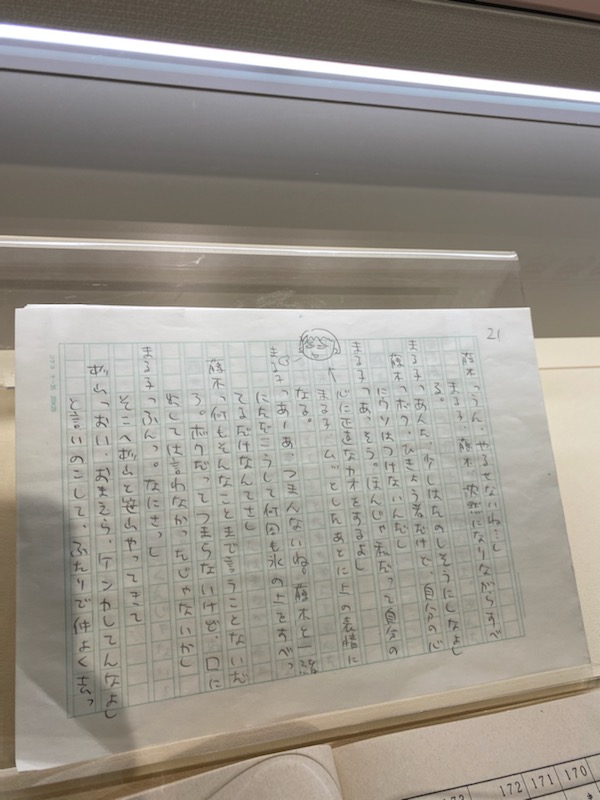 21
藤木「うん、やるせないね…」
まる子、藤木、沈黙になりながらすべ
る。
まる子「あんた、少しはたのしそうにしなよ」
藤木「ボク、ひきょう者だけど、自分の心
にウソはつけないんだ」
まる子「あっそう。ほんじゃ私だって自分の
心に正直なカオをするよ」
まる子、ムッとしたあとに上の表情に
なる。
まる子「あーーあ、つまんないね。藤木と一緒
にただこうして何回も氷の上をすべっ
てるだけなんてさ」
藤木「何もそんなことまで言うことないだ
ろ。ボクだってつまらないけど、口に
出しては言わなかったじゃないか」
まる子「ふんっ。なにさっ」
そこへ杉山と
やってきて
杉山「おい、おまえら、ケンカしてんなよ」
と言いのこして、ふたりで仲よく去っ
172 171 170